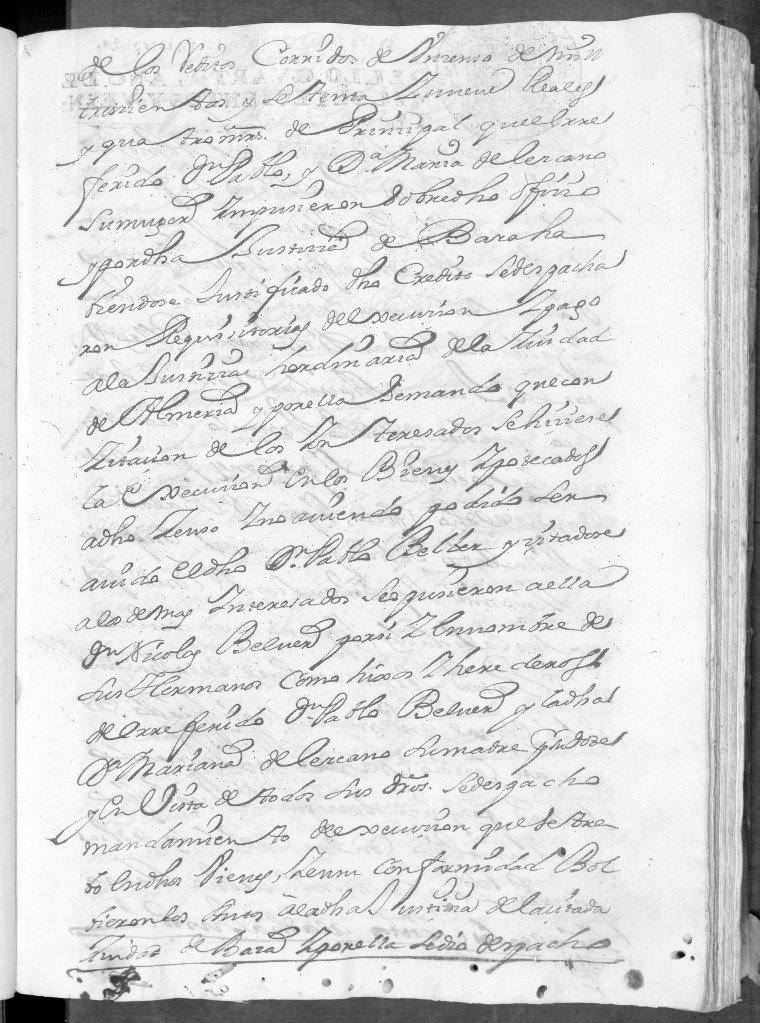 de los Reditos Corridos de Un zenso de mill
trezientos, y setenta Y nueve Reales
y quatro mrs. de Prinzipal que el rre
ferido Dn Pablo, y Da. Maria de lezcano
su muger Ympusieron sobre dho ofizio
y por dha Justizia de Baza ha
viendose Justificado dho Credito se despacha
ron Requisitorias de execuzion Y pago
a la Justizia hordinaria de la Ziudad
de Almeria y por ella Demando que con
Zitazion de los Ynteresados se hiziese
la execuzion en los Bienes Ypotecados
a dho Zenso Y no aviendo podido ser
avido el dho Dn. Pablo Belber y zitadose
a los demas Ynteresados se opusieron a ella
Dn Nicolas Belver por si Y en nombre de
sus Hermanos como hixos Y herederos
del rreferido Dn Pablo Belver y la dha
Da Mariana de lezcano su madre
y en Vista de todos sus dros. se despacho
mandamiento de execuzion que se tra
bo en dhos Bienes, Y en su conformidad Bol
bieron los Autos a la dha Justizia de la zitada
Ziudad de Baza Y por ella se dio despacho